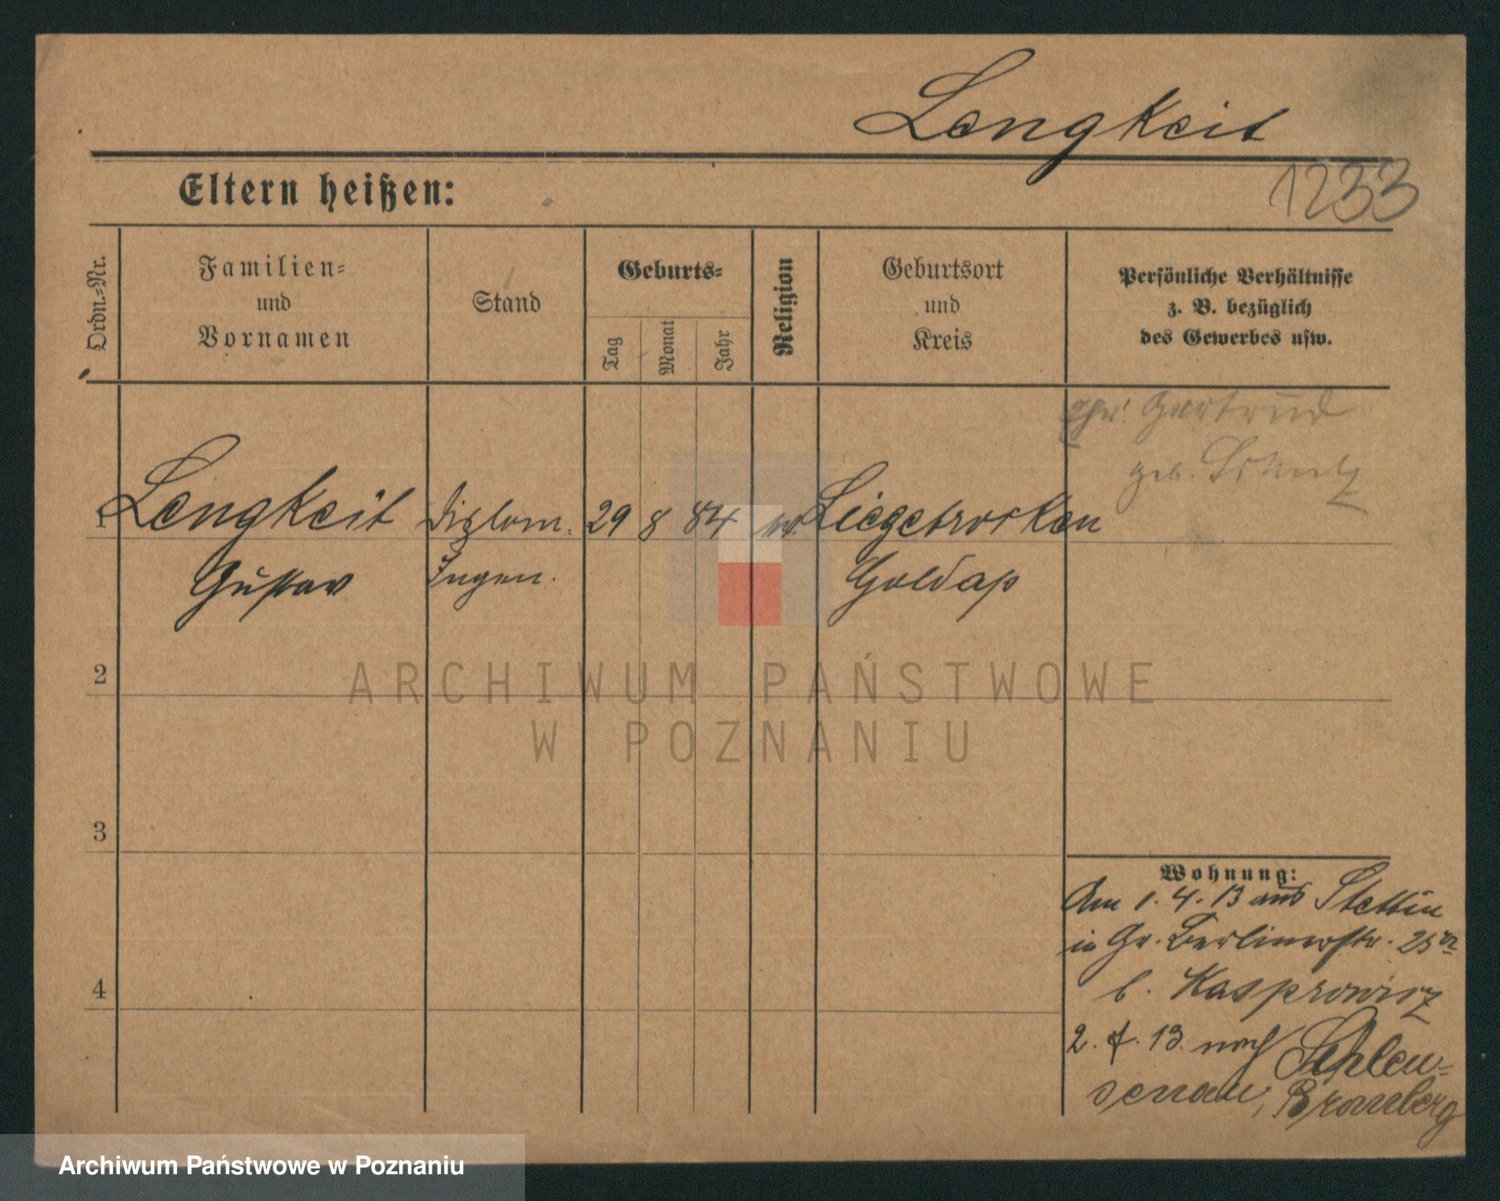 Lengkeit
1233
Eltern heißen:
Ordn.-Nr.
Familien-
und
Vornamen
Stand
Geburts-
Tag
Monat
Jahr
Religion
Geburtsort
und
Kreis
Persönliche Verhältnisse
z. B. bezüglich
des Gewerbes usw.
Gertrud
geb.
1 Lengkeit Diplom. 29 8 84 Liegetrocken
Gustav Ingen. Goldap
2
3
4
Wohnung:
Am 1. 4. 13 aus Stettin
in Gr. Berlinerstr. 25
b. Kasprowicz
2. 7. 13. nach Schleu-
senau, Bromberg
ARCHIWUM PAŃSTWOWE
W POZNANIU
Archiwum Państwowe w Poznaniu